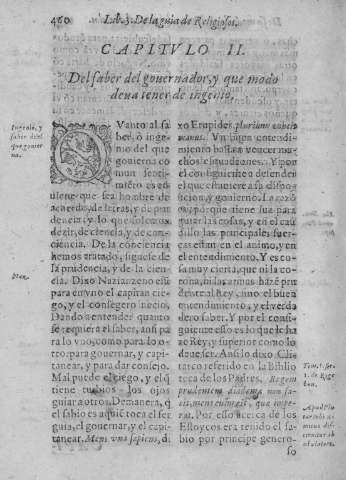 460 Lib. 3. De la guia de Religiosos.
CAPITVLO II.
Del saber del gouernador, y que modo
deua tener de ingenio.
Ingenio, y
saber del
que gouier
na.
QVanto al sa
ber, o inge-
nio del que
gouierna co
mun senti-
miento es es
que sea hombre de
acuerdo, de letras, y de pru
dencia: y lo que solemos
dezir, de ciencia, y de con-
ciencia. De la conciencia
hemos tratado, siguese de
la prudencia, y de la cien-
cia. Dixo Nazianzeno està
para en vno el capitan cie-
go, y el consegero necio.
Dando a entender quanto
se requiera el saber, ansi pa
ra lo vno, como para lo o-
tro: para gouernar, y capi-
tanear, y para dar consejo.
Mal puede el ciego, y el q̃
tiene turbios los ojos
guiar a otros. Demanera, q̃
el sabio es aquiẽ toca el ser
guia, el gouernar, y el capi-
tanear. Mens vna sapiens, di
xo Eripides, plurium
manus. Vn buen entendi-
miento basta a vencer mu-
chos esquadrones. Y por
el consiguiente a defender
el que estuuiere a su dispo-
sicion, y gouierno. La razõ
es, porque tiene sus para
guiar las cosas, y en el cau
dillo las principales fuer-
ças estan en el animo, y en
el entendimiento. Y es co-
sa muy cierta, que ni la co-
rona, ni las armas hazẽ pru
dente al Rey, sino el buen
entendimiento, y el verda
dero saber. Y por el consi-
guiente esso es lo que le ha
ze Rey, y superior como lo
deue ser. Ansi lo dixo Cli-
tarco referido en la Biblio
teca de los Padres. Regem
prudentem diadema non fa-
cit, mens enim est, que impe-
rat. Por esso acerca de los
Estoycos era tenido el sa-
bio por principe genero-
so